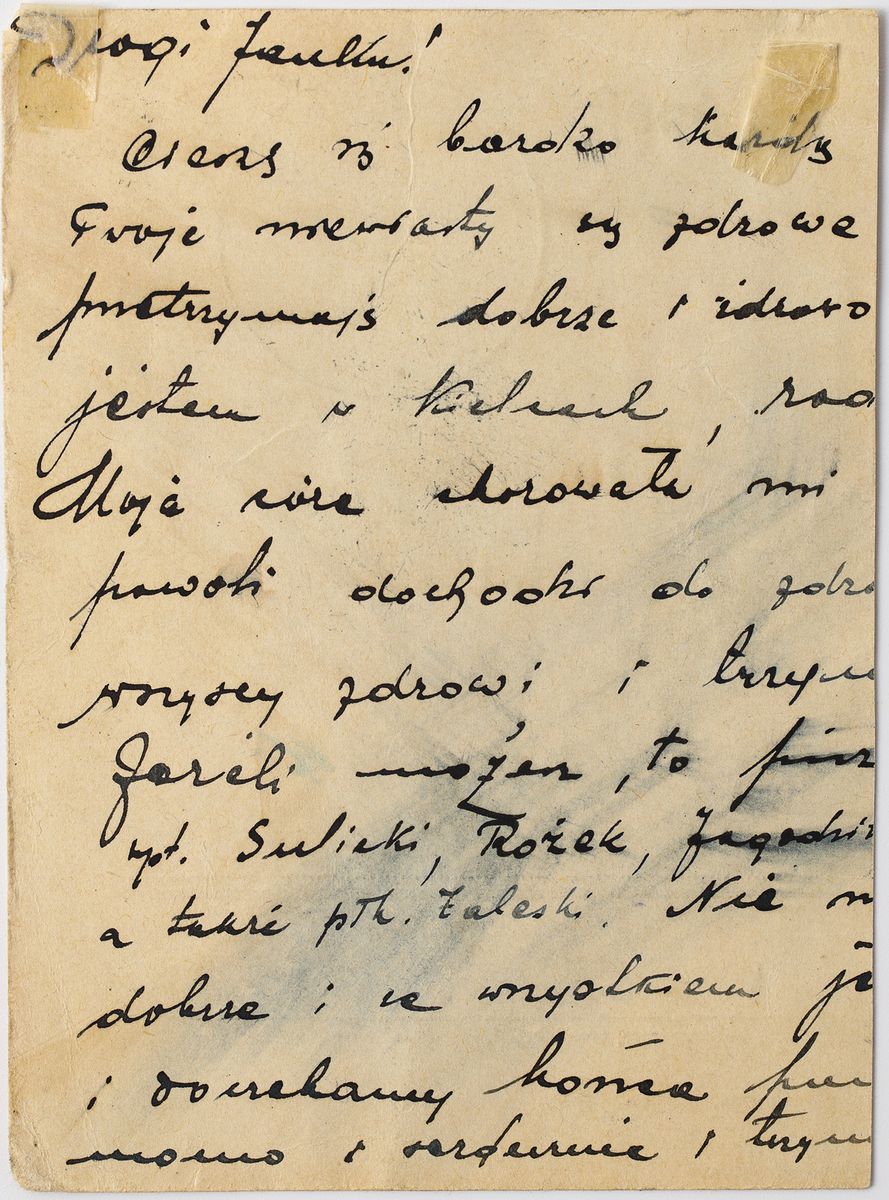 Drogi Janku!
Cieszę się bardzo każdy
Twoje niewiasty są zdrowe
przetrzymają dobrze i zdrowo
jestem w Kielcach,
Moja córa chorowała mi
powoli dochodzi do zdro
wszyscy zdrowi i trzym
Jeżeli możesz, to pisz
rpt. Sulicki, Rożek, Jagodzi
a także płk. Zaleski. Nie
dobrze i ze wszystkiem je
i doczekamy końca
mocno i serdecznie i trzym